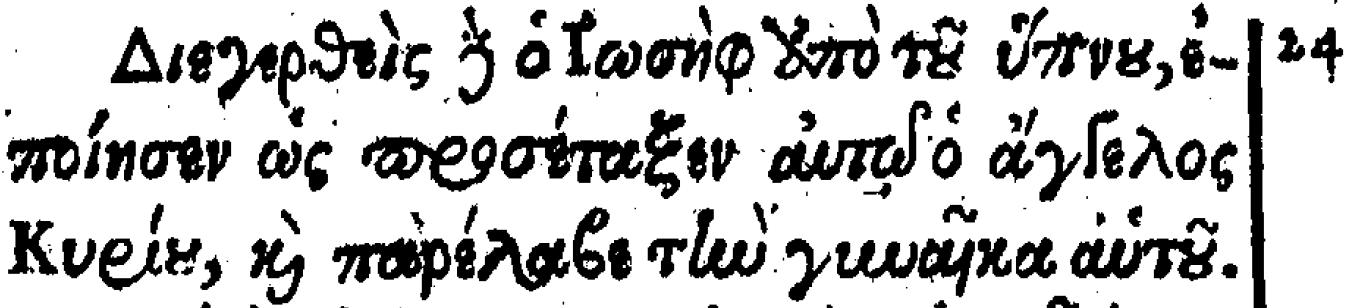 Διεγερθεὶς δὲ ὁ Ἰωσὴφ ἀπὸ τοῦ ὕπνου, ἐ- 24
ποίησεν ὡς προσέταξεν αὐτῷ ὁ ἄγγελος
Κυρίου, καὶ παρέλαβε τὴν γυναῖκα αὑτοῦ.